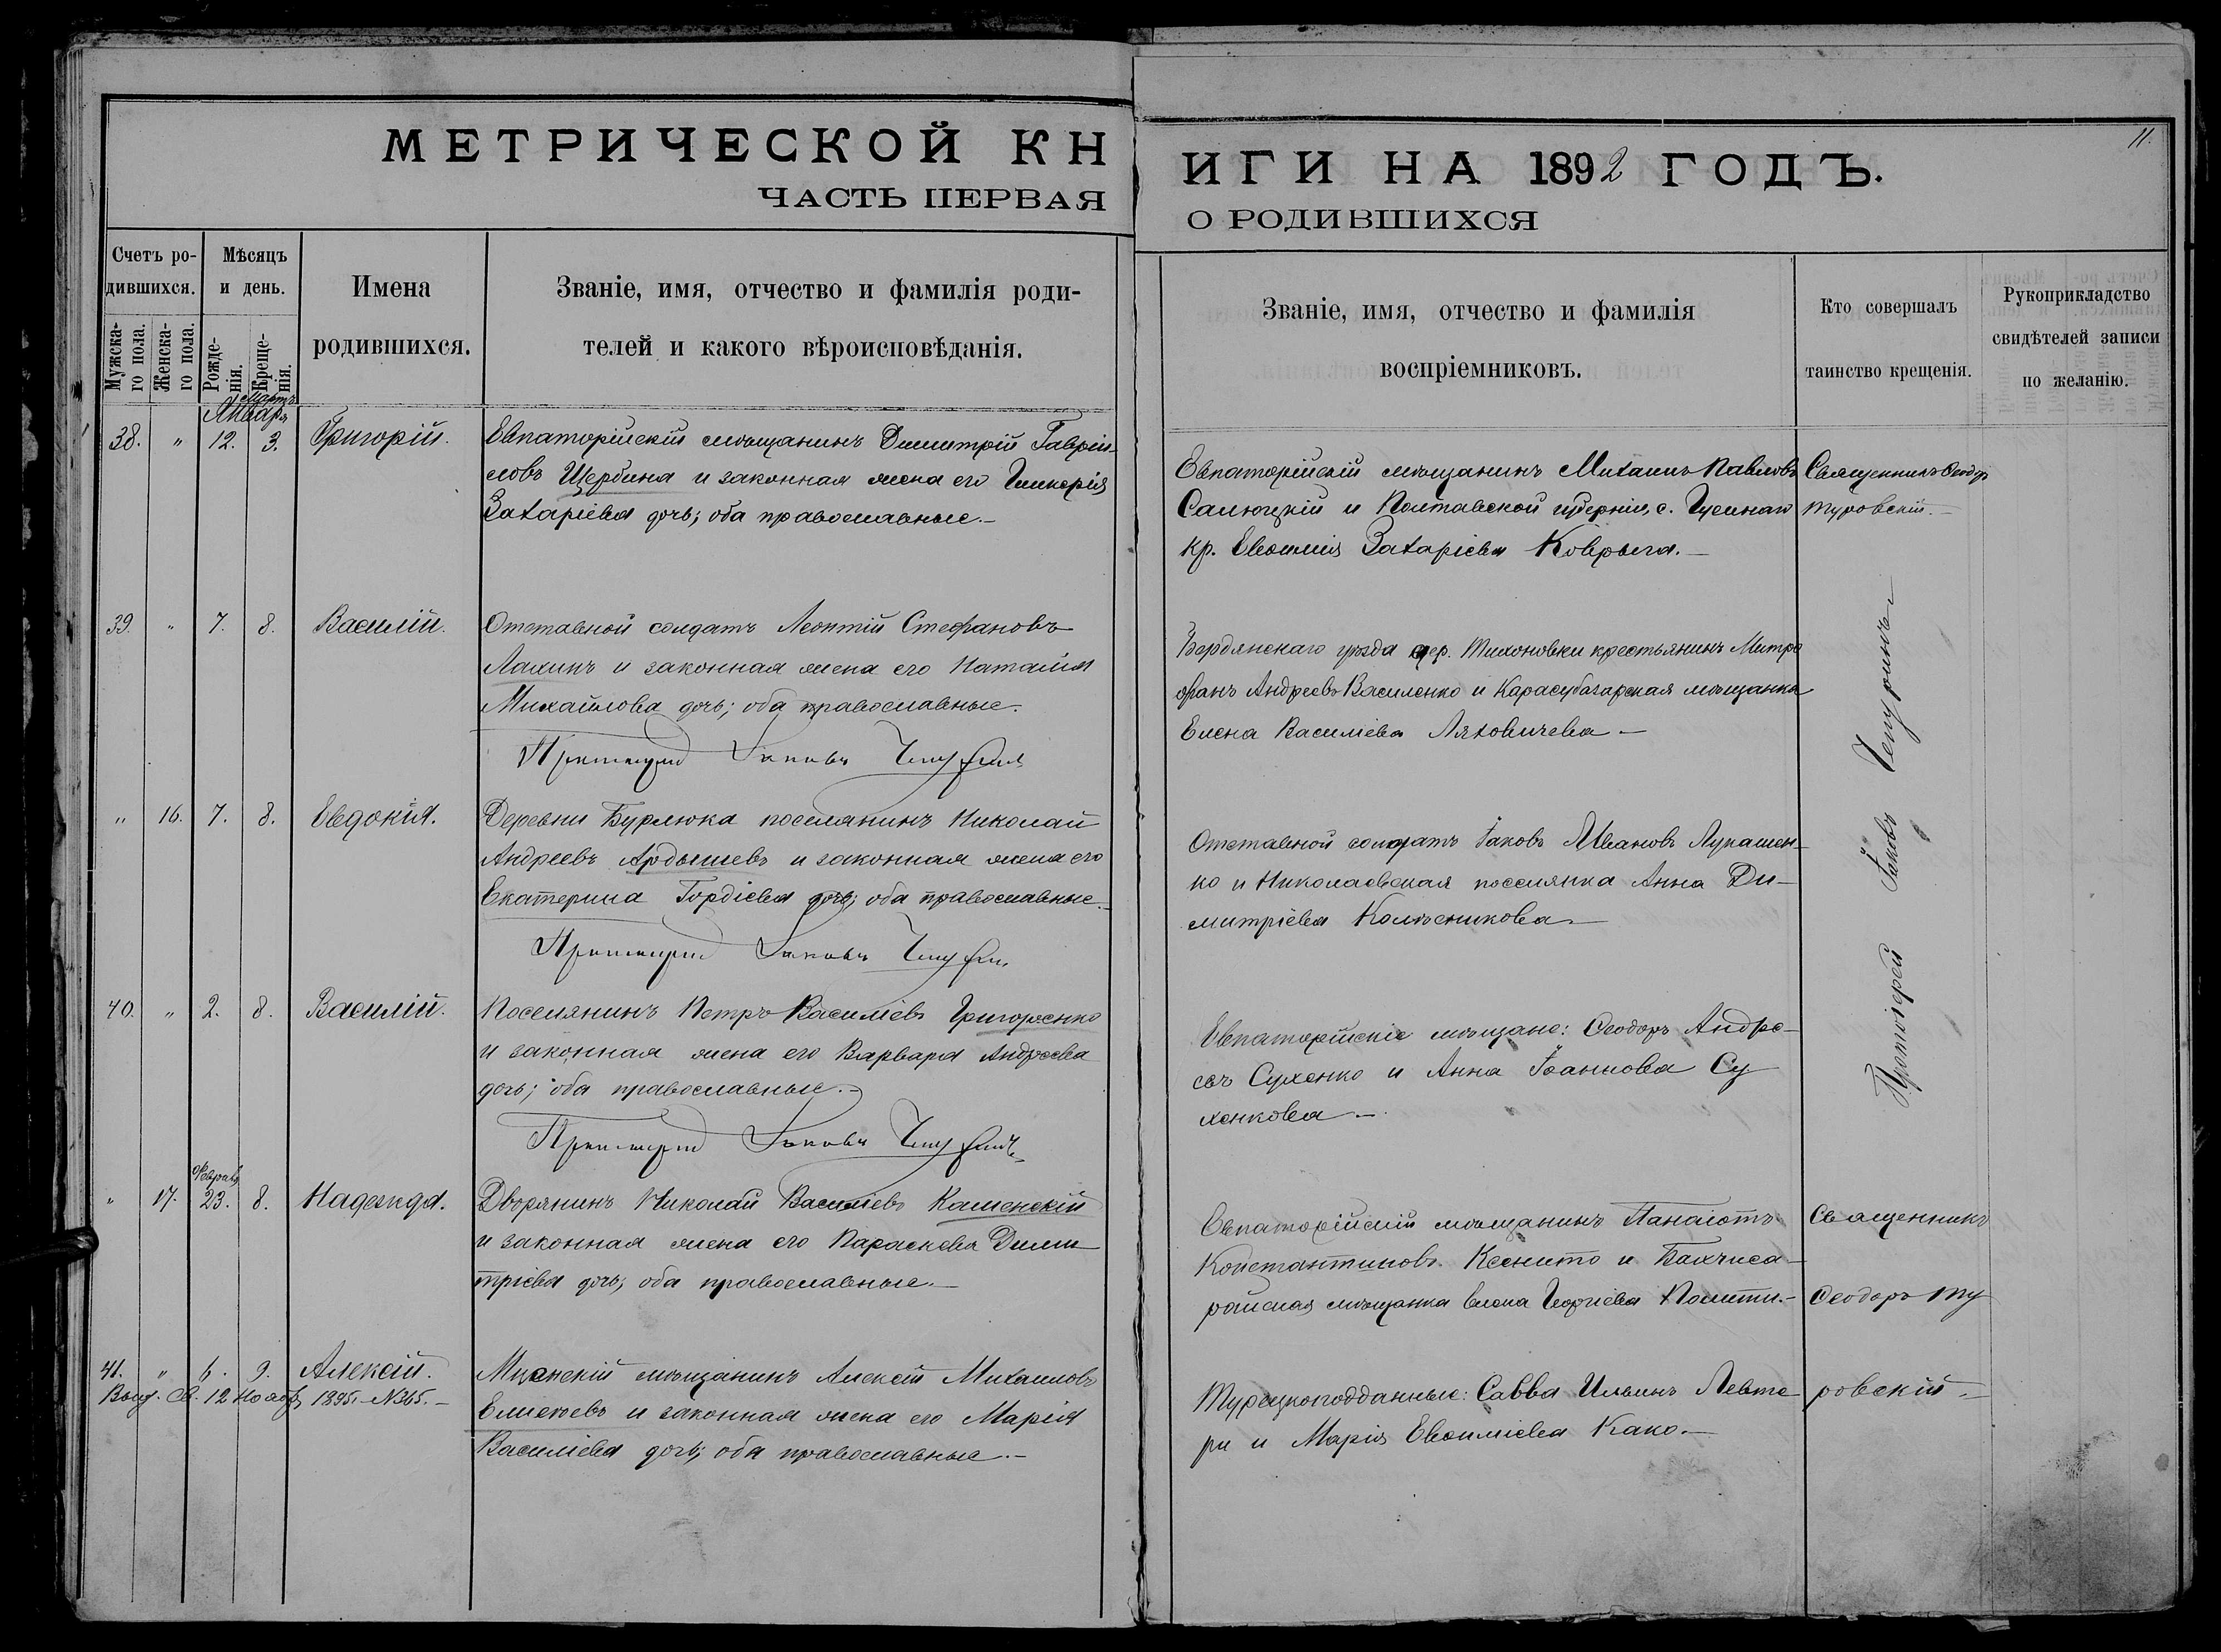 МЕТРИЧЕСКОЙ КНИГИ НА 1892 ГОДЪ.
11.
ЧАСТЬ ПЕРВАЯ О РОДИВШИХСЯ
Счетъ родившихся.
Мужскаго пола.
Женскаго пола.
Мѣсяцъ и день.
Рожденія.
Крещенія.
Имена родившихся.
Званіе, имя, отчество и фамилія родителей и какого вѣроисповѣданія.
Званіе, имя, отчество и фамилія воспріемниковъ.
Кто совершалъ таинство крещенія.
Рукоприкладство свидѣтелей записи по желанію.
Январь Мартъ
38. " 12. 3. Григорій.
Евпаторійскій мѣщанинъ Димитрій Гавріи-
ловъ Щербина и законная жена его Гликерія
Захаріева дочь; оба православные.-
Евпаторійскій мѣщанинъ Михаилъ Павловъ
Салюцкій и Полтавской губерніи, с. Гусинаго
кр. Евѳимія Захаріева Коврыга.-
Священникъ Ѳеодоръ
Туровскій.-
39. " 7. 8. Василій.
Отставной солдатъ Леонтій Стефановъ
Лахинъ и законная жена его Наталія
Михайлова дочь; оба православные.
Протоіерей Іаковъ Чепуринъ
Бердянскаго уѣзда дер. Тихоновки крестьянинъ Митро
фанъ Андреевъ Василенко и Карасубазарская мѣщанка
Елена Василіева Ляховичева-
Протоіерей Іаковъ Чепуринъ
" 16. 7. 8. Евдокія.
Деревни Бурлюка поселянинъ Николай
Андреевъ Ардышевъ и законная жена его
Екатерина Гордіева дочь; оба православные.-
Протоіерей Іаковъ Чепуринъ
Отставной солдатъ Іаковъ Ивановъ Лукашен-
ко и Николаевская поселянка Анна Ди-
митріева Колѣсникова-
40. " 2. 8. Василій.
Поселянинъ Петръ Василіевъ Григоренко
и законная жена его Варвара Андреева
дочь; оба православные.-
Протоіерей Іаковъ Чепуринъ
Евпаторійскіе мѣщане: Ѳеодоръ Андре-
евъ Сухенко и Анна Іоаннова Су
хенкова-
Февраля
" 17. 23. 8. Надежда.
Дворянинъ Николай Василіевъ Каменскій
и законная жена его Параскева Дими
тріева дочь; оба православные.-
Евпаторійскій мѣщанинъ Панаіотъ
Константиновъ и Бахчиса-
райская мѣщанка Елена Георгіева Полити.-
Священникъ
Ѳеодоръ Ту
ровскій.-
41. " 6. 9. Алексій.
Выд. св. 12 Нояб. 1895. N365.-
Мценскій мѣщанинъ Алексій Михаиловъ
Елисѣевъ и законная жена его Марія
Василіева дочь; оба православные.-
Турецкоподданные: Савва Ильинъ Левте
ри и Марія Евѳиміева Како.-